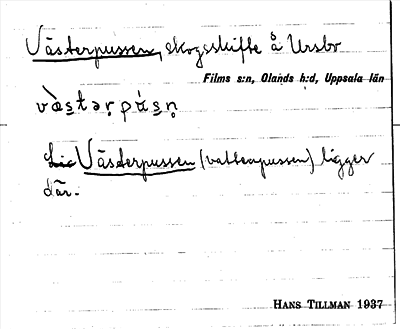 Västerpussen, skogsskifte å Ursbo
Films s:n, Olands h:d, Uppsala län
vàs̱tər̥pás̱n̥
Västerpussen (vattenpussen) ligger
där.
Hans Tillman 1937